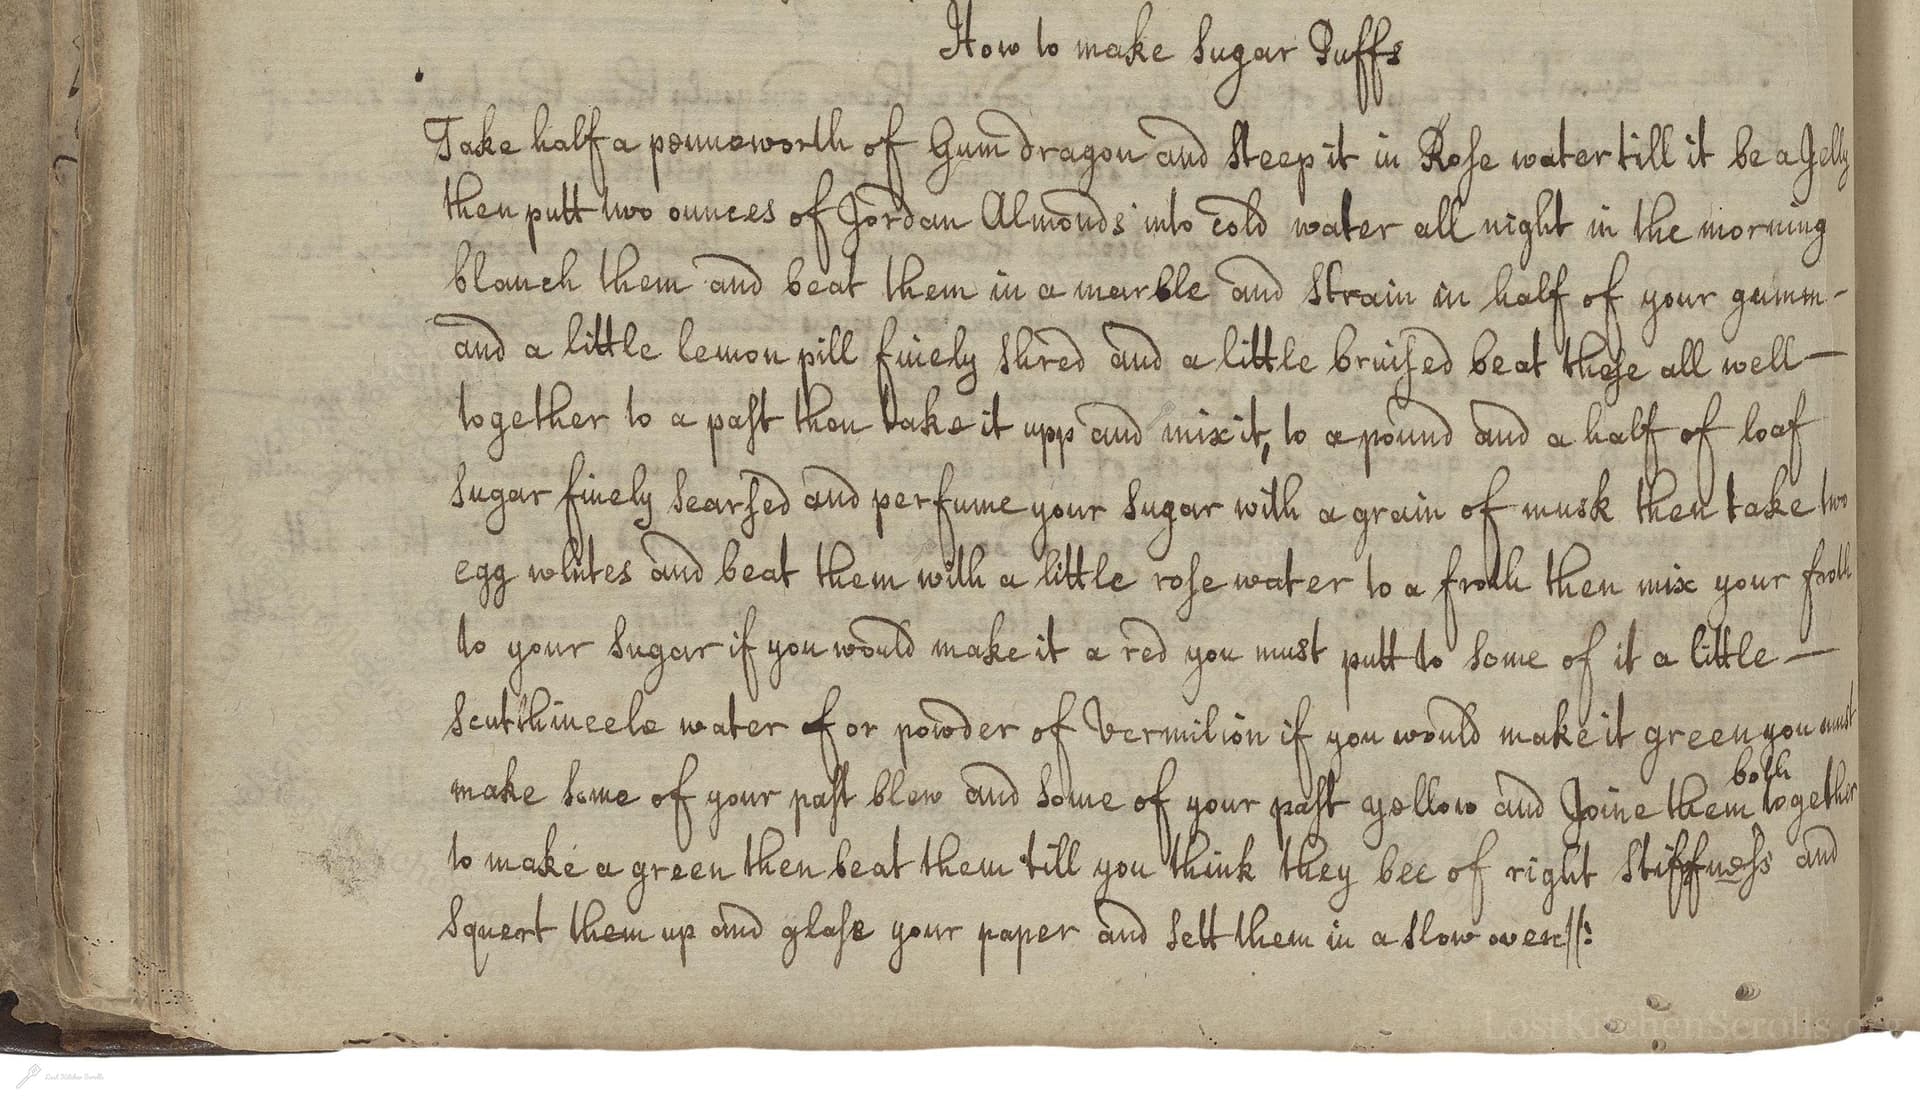 How to make Sugar Puffs
Take half a penneworth of Gum dragon and steep it in Rose water till it be a Jelly
then putt two ounces of Jordan Almonds into cold water all night in the morning
blanch them and beat them in a marble and strain in half of your gumm-
and a little lemon pill finely shred and a little bruised beat these all well-
together to a past then take it upp and mix it, to a pound and a half of loaf
sugar finely searsed and perfume your sugar with a grain of musk then take two
egg whites and beat them with a little rose water to a froth then mix your froth
to your sugar if you would make it a red you must putt to some of it a little -
scutthineele water for powder of Vermilion if you would make it green you must
make some of your past blew and some of your past yellow and Joine them both together
to make a green then beat them till you think they bee of right stiffness and
squert them up and glase your paper and sett them in a slow oven//:
LostKitchenScrolls.org
Lost Kitchen Scrolls